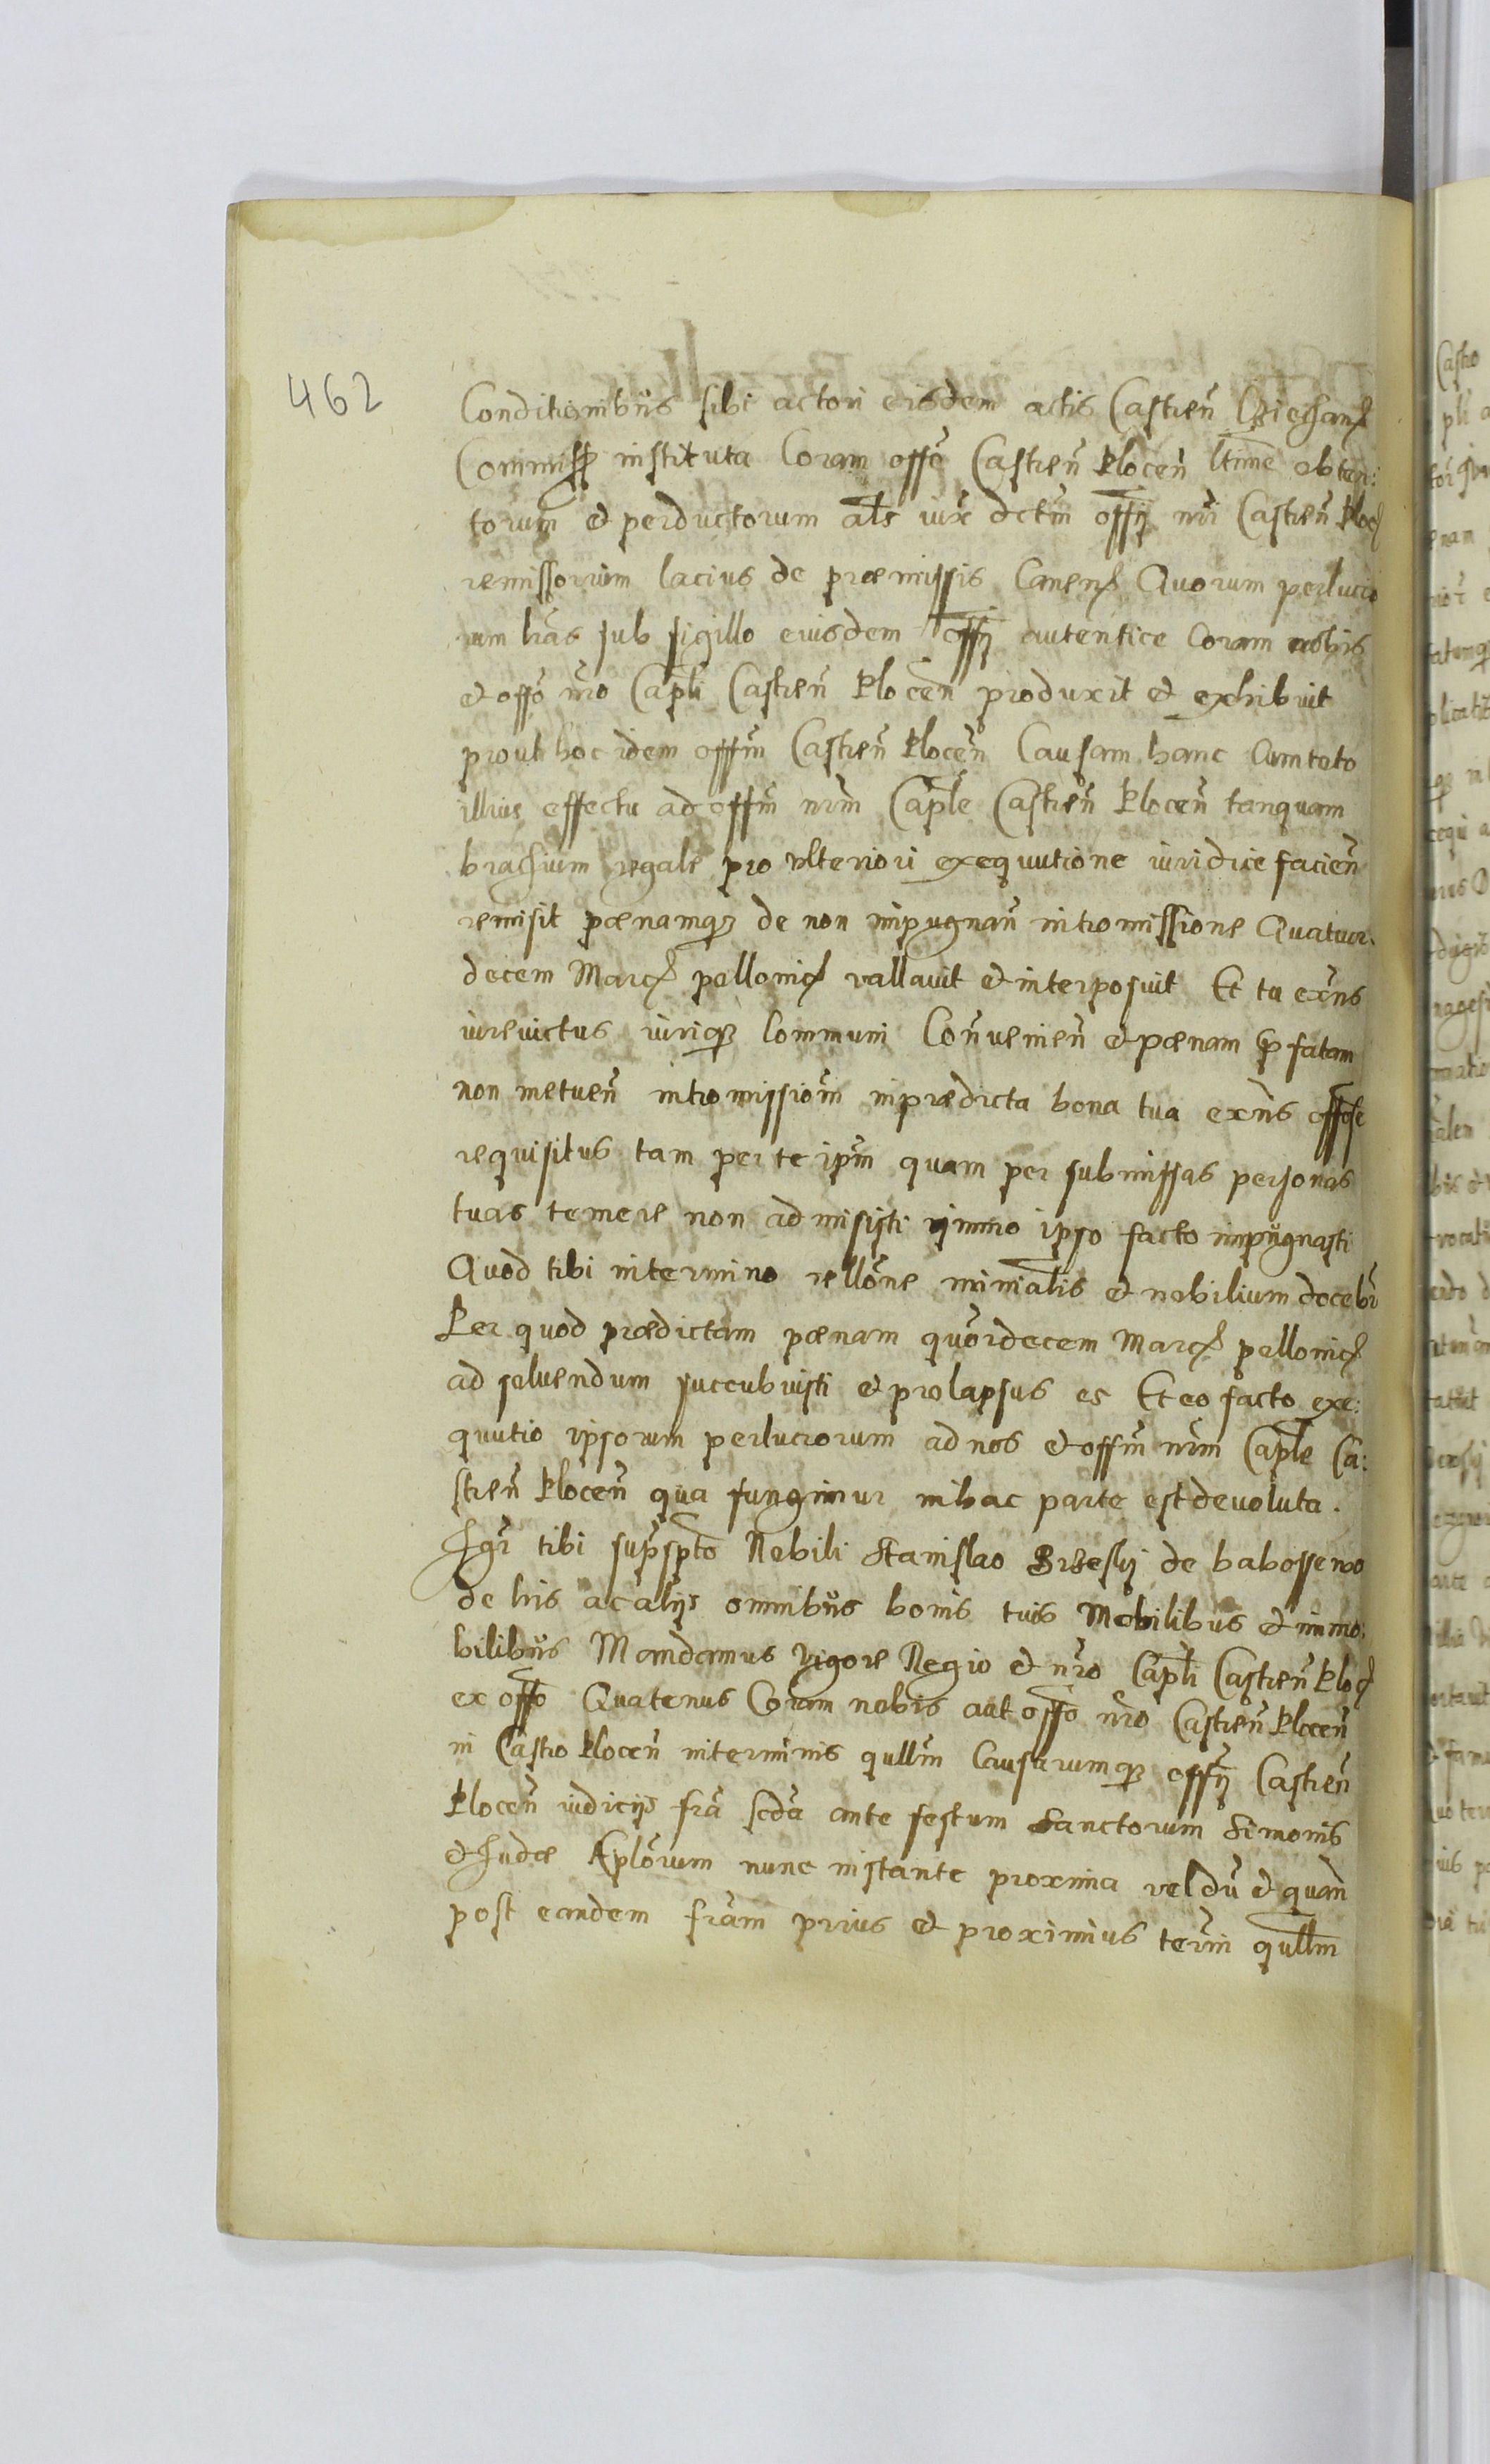 462
Conditionibus sibi actori eisdem actis Castren Cziechan
Commiss instituta Coram offo Castren Plocen ltime obten:
torum et perductorum als iux dctm offij nri Castren Ploc
remissorium lacius de præmissis Canen Quorum perlucro
rum hras sub sigillo eiusdem offij autentice Coram nobis
et offo nro Capli Castren Plocen produxit et exhibuit
prout hoc idem offm Castren Plocen Causam hanc Cum toto
illius effectu ad offm nrm Caple Castren Plocen tanquam
brachium regale pro ulteriori exequutione iuridice facien
remisit pœnamq de non impugnan intromissione Quatuor
decem Marc pollonic vallavit et interposuit Et tu exns
iurevictus iuriq Communi Convenien et pœnam præfatam
non metuen intromissiom in prædicta bona tua exns offose
requisitus tam per te ipm quam per submissas personas
tuas temere non admisisti ymmo ipso facto impugnasti
Quod tibi in termino rellone minialis et nobilium docebr
Per quod prædictam pœnam quordecem Marc pollonic
ad solvendum succubuisti et prolapsus es Et eo facto exe:
quutio ipsorum perlucrorum ad nos et offm nrm Caple Ca:
stren Plocen qua fungimur in hac parte est devoluta.
Igr tibi suprspto Nobili Stanislao Brzeski de babossewo
de his ac alijs omnibus bonis tuis Mobilibus et immo:
bilibus Mandamus Vigore Regio et nro Capli Castren Ploc
ex offo Quatenus Coram nobis aut offo nro Castren Plocen
in Castro Plocen in terminis qullm Causarumq offij Castren
Plocen iudicijs fra scda ante festum Sanctorum Simonis
et Judæ Aplorum nunc instante proxima vel du et quan
post eandem fram prius et proximius term qullm